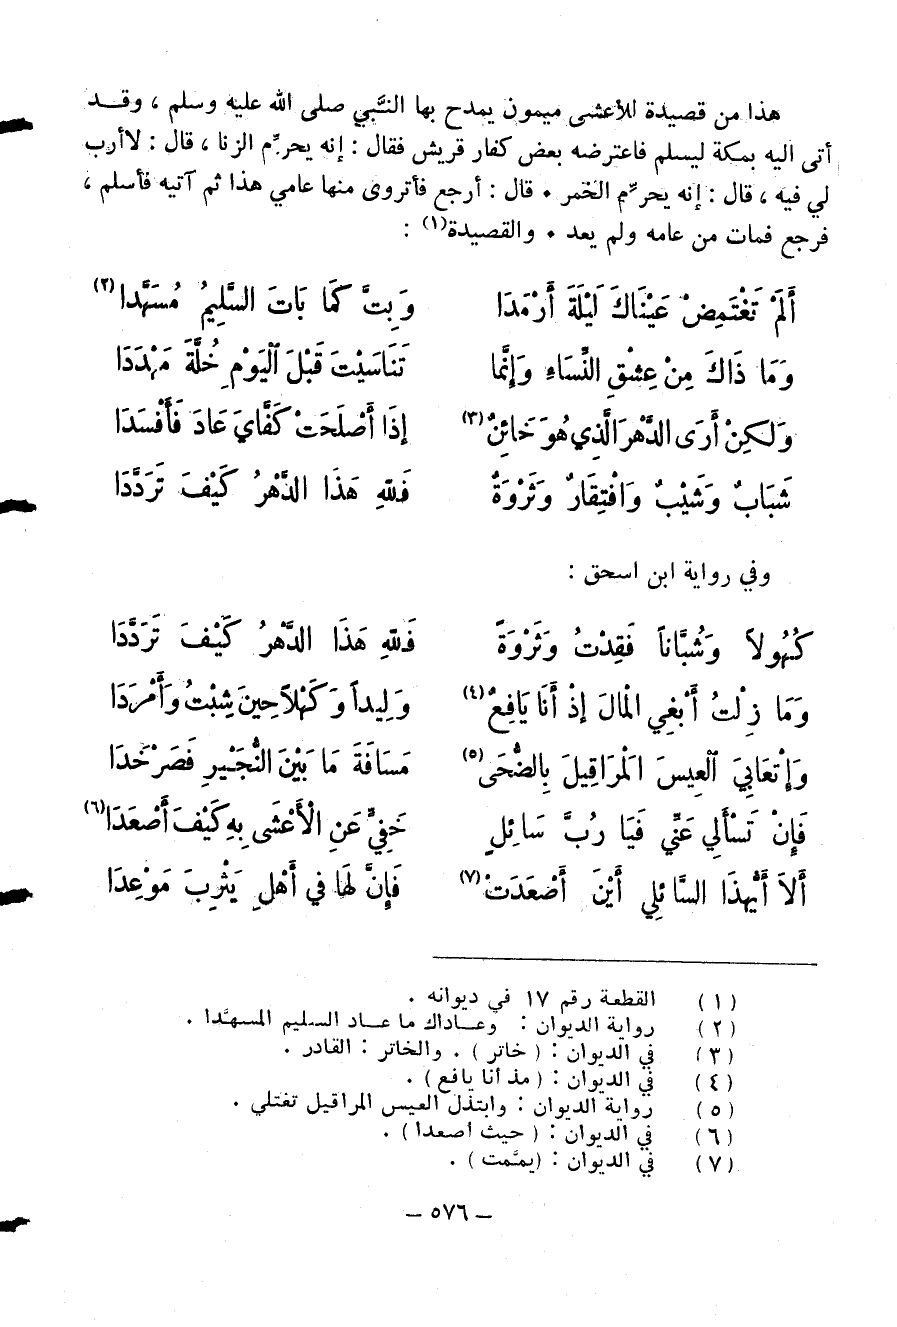 هذا من قصيدة للأعشى ميمون يمدح بها النَّبي صلى الله عليه وسلم ، وقـد
أتى اليه بمكة ليسلم فاعترضه بعض كفار قريش فقال : إنه يحرِّم الزنا ، قال : لا أرب
لي فيه ، قال : إنه يحرِّم الخمر • قال : أرجع فأتروى منها عامي هذا ثم آتيه فأسلم ،
فرجع فمات من عامه ولم يعد • والقصيدة(١) :
أَلَمْ تَغْتَمِضْ عَيْنَاكَ لَيْلَةَ أَرْمَدَا وَبِتَّ كَمَا بَاتَ السَّلِيمُ مُسَهَّدا(٢)
وَمَا ذَاكَ مِنْ عِشْقِ النِّسَاءِ وَإِنَّما تَنَاسَيْتَ قَبْلَ اَلْيَوْمِ خُلَّةَ مَهْدَدَا
وَلكِنْ أَرَى الدَّهْرَ الَّذِي هُوَ خَائِنٌ(٣) إِذَا أَصْلَحَتْ كَفَّايَ عَادَ فَأَفْسَدَا
شَبَابٌ وَشَيْبٌ وَافْتِقَارٌ وَثَرْوَةٌ فَلِلّهِ هَذَا الدَّهْرُ كَيْفَ تَرَدَّدَا
وفي رواية ابن اسحق :
كُهُولاً وَشُبَّاناً فَقِدْتُ وَثَرْوَةً فَلِلّهِ هَذَا الدَّهْرُ كَيْفَ تَرَدَّدَا
وَمَا زِلْتُ أَبْغِي الْمَالَ إِذْ أَنَا يَافِعٌ(٤) وَلِيداً وَكَهْلاً حِينَ شِبْتُ وَأَمْرَدَا
وَإِتعَابِيَ اَلْعِيسَ الْمَرَاقِيلَ بِالضُّحَى(٥) مَسَافَةَ مَا بَيْنَ النُّجَيْرِ فَصَرْخَدَا
فَإِنْ تَسْأَلِي عَنِّي فَيَا رُبَّ سَائِلٍ خَفِيٍّ عَنِ الْأَعْشَى بِهِ كَيْفَ أَصْعَدَا(٦)
أَلاَ أَيُّهذَا السَّائِلِي أَيْنَ أَصْعَدَتْ(٧) فَإِنَّ لَهَا فِي أَهْلِ يَثْرِبَ مَوْعِدَا
(١) القطعة رقم ١٧ في ديوانه .
(٢) رواية الديوان : وعـاداك ما عـاد السـليم المسهَّدا .
(٣) في الديوان : ( خاتر ) . والخاتر : الغادر .
(٤) في الديوان : ( مذ أنا يافع ) .
(٥) رواية الديوان : وابتذل العيس المراقيل تغتلي .
(٦) في الديوان : ( حيث أصعدا ) .
(٧) في الديوان : (يمَّمت ) .
– ٥٧٦ –